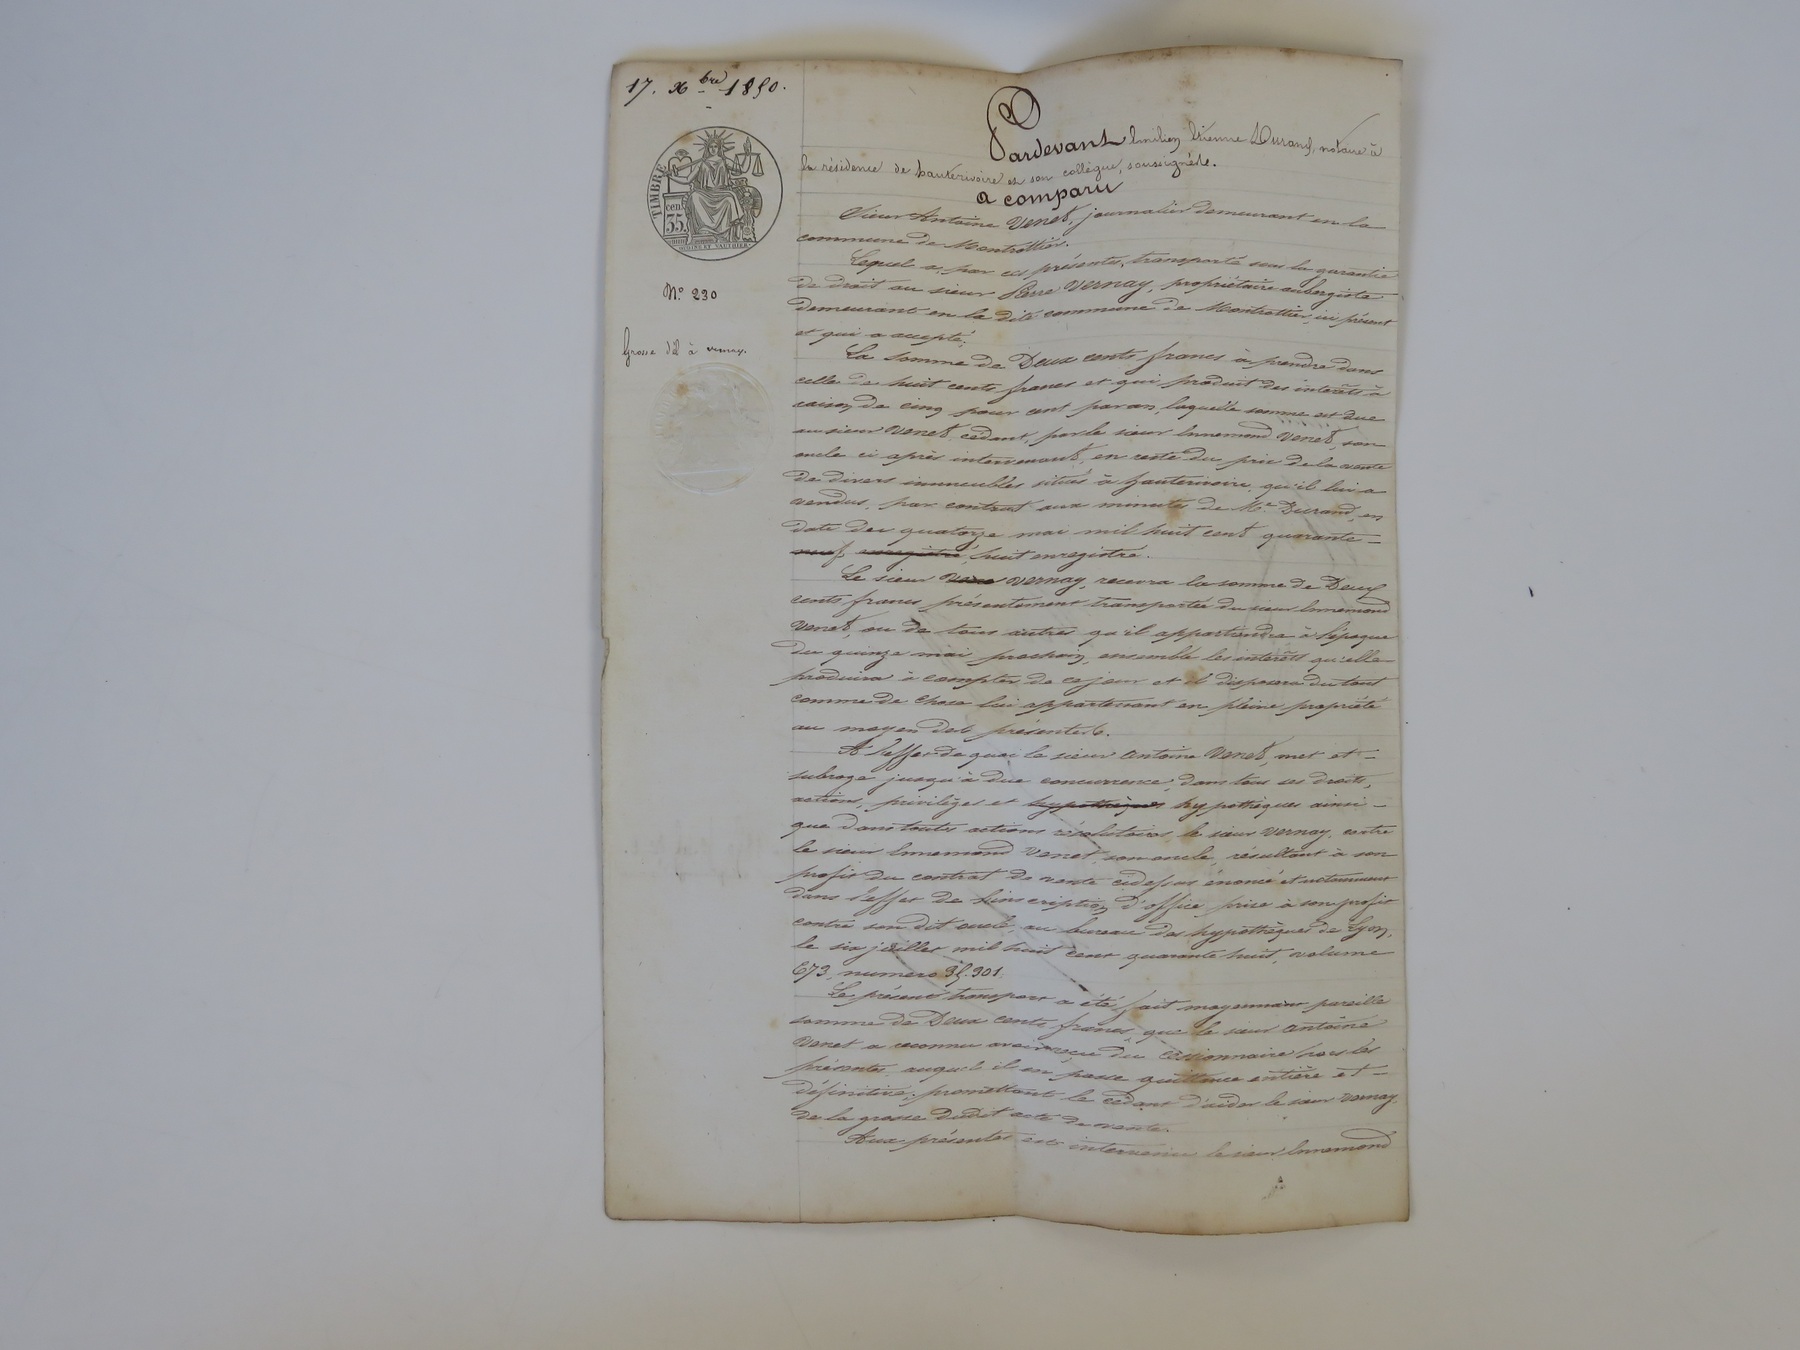 17. Xbre 1850.
TIMBRE
cen.
35.
N.° 230
Grosse dél à vernay.
Pardevant Emilien Etienne Durand, notaire à
la résidence de hauterivoire et son collègue, soussignés.
a comparu
Sieur Antoine Venet, journalier demeurant en la
commune de Montrottier.
Lequel a, par ces présentes, transporté sous la garantie
de droit au sieur Pierre Vernay, propriétaire aubergiste
demeurant en la dite commune de Montrottier, ici présent
et qui a accepté;
La somme de Deux cents francs à prendre dans
celle de huit cents francs et qui produit des intérêts à
raison de cinq pour cent par an, laquelle somme est due
au sieur Venet, cédant, par le sieur Ennemond Venet, son
oncle ci après intervenant, en reste du prix de la vente
de divers immeubles situés à hauterivoire, qu'il lui a
vendus, par contrat aux minutes de Me Durand, en
date du quatorze mai mil huit cent quarante-
neuf enregistré, huit enregistré.
Le sieur Vernay, recevra la somme de Deux
cents francs présentement transportée du sieur Ennemond
Venet, ou de tous autres qu'il appartiendra à l'époque
du quinze mai prochain, ensemble les intérêts qu'elle
produira à compter de ce jour et il disposera du tout
comme de chose lui appartenant en pleine propriété
au moyen des présentes.
A l'effet de quoi le sieur Antoine Venet, met et
subroge jusqu'à due concurrence, dans tous ses droits,
actions, privilèges et hypothèques hypothèques ainsi-
que dans toutes actions résolutoires, le sieur Vernay, contre
le sieur Ennemond Venet, son oncle, résultant à son
profit du contrat de vente cidessus énoncé et notamment
dans l'effet de l'inscription d'office prise à son profit
contre son dit oncle, au bureau des hypothèques de Lyon,
le six juillet mil huit cent quarante huit, volume
673, numero 35.301.
Le présent transport a été fait moyennant pareille
somme de Deux cents francs, que le sieur Antoine
Venet a reconnu avoir reçue du cessionnaire hors les
présentes, auquel il en passe quittance entière et-
définitive; promettant le cédant d'aider le sieur Vernay,
de la grosse dudit acte de vente.
Aux présentes est intervenu le sieur Ennemond